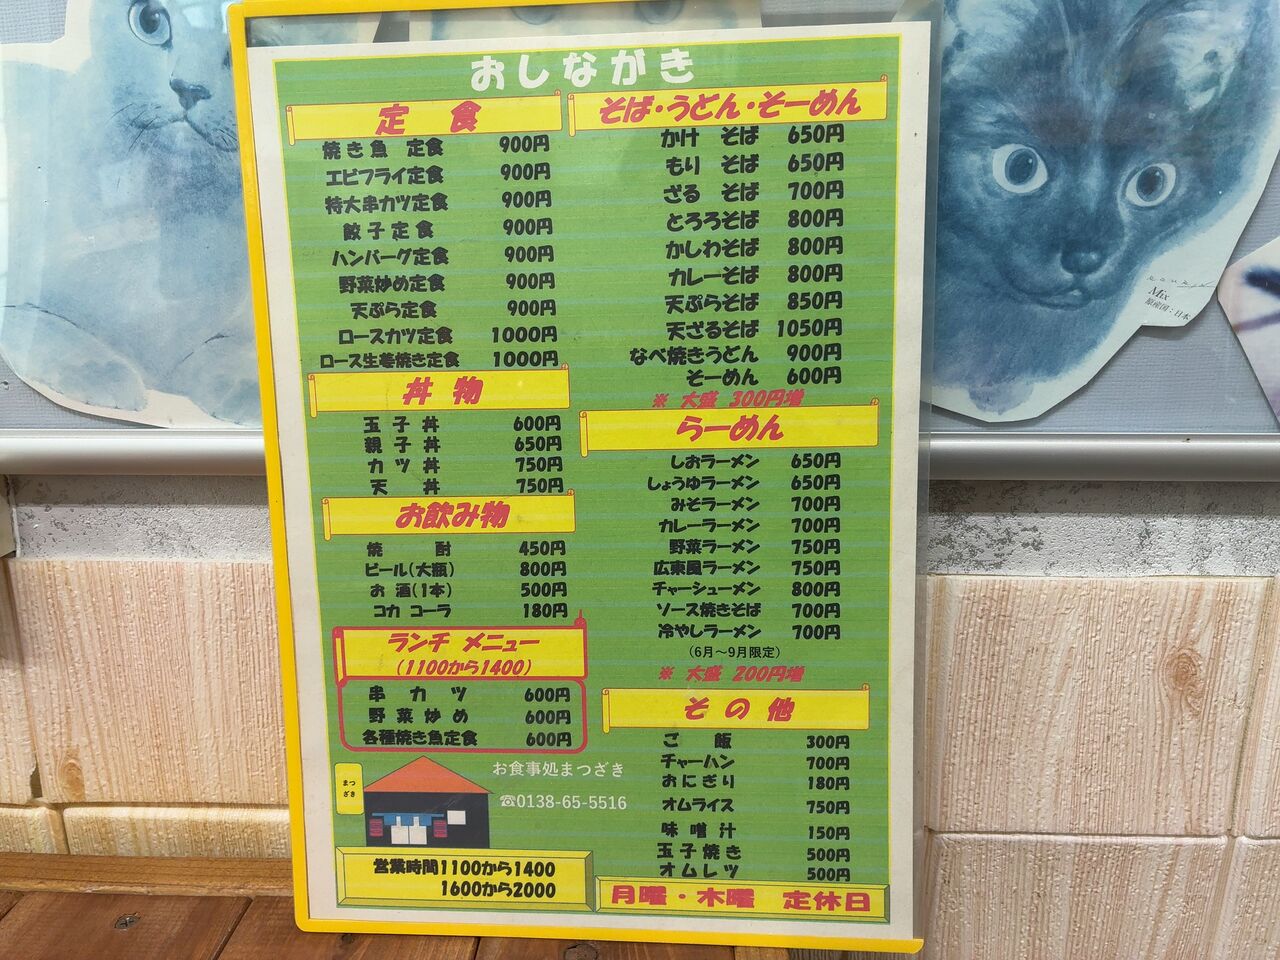 おしながき
定食
焼き魚 定食 900円
エビフライ定食 900円
特大串カツ定食 900円
餃子定食 900円
ハンバーグ定食 900円
野菜炒め定食 900円
天ぷら定食 900円
ロースカツ定食 1000円
ロース生姜焼き定食 1000円
丼物
玉子丼 600円
親子丼 650円
カツ丼 750円
天丼 750円
お飲み物
焼酎 450円
ビール(大瓶) 800円
お酒(1本) 500円
コカ コーラ 180円
ランチ メニュー
(1100から1400)
串カツ 600円
野菜炒め 600円
各種焼き魚定食 600円
お食事処まつざき
☎0138-65-5516
まつ
ざき
営業時間1100から1400
1600から2000
そば・うどん・そーめん
かけ そば 650円
もり そば 650円
ざる そば 700円
とろろそば 800円
かしわそば 800円
カレーそば 800円
天ぷらそば 850円
天ざるそば 1050円
なべ焼きうどん 900円
そーめん 600円
※ 大盛 300円増
らーめん
しおラーメン 650円
しょうゆラーメン 650円
みそラーメン 700円
カレーラーメン 700円
野菜ラーメン 750円
広東風ラーメン 750円
チャーシューメン 800円
ソース焼きそば 700円
冷やしラーメン 700円
(6月～9月限定)
※ 大盛 200円増
その他
ご飯 300円
チャーハン 700円
おにぎり 180円
オムライス 750円
味噌汁 150円
玉子焼き 500円
オムレツ 500円
月曜・木曜 定休日
Mix
原産国：日本